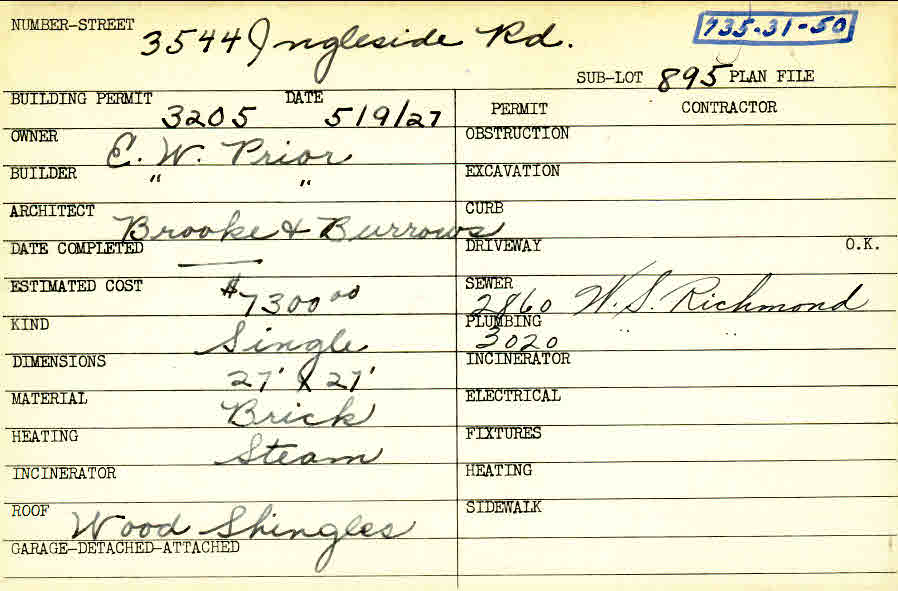 NUMBER-STREET 3544 Ingleside Rd. 735-31-50
SUB-LOT 895 PLAN FILE
BUILDING PERMIT 3205 DATE 5/9/27
OWNER E. W. Prior
BUILDER " "
ARCHITECT Brooke & Burrows
DATE COMPLETED —
ESTIMATED COST $7300.00
KIND Single
DIMENSIONS 27' X 27'
MATERIAL Brick
HEATING Steam
INCINERATOR
ROOF Wood Shingles
GARAGE-DETACHED-ATTACHED
PERMIT CONTRACTOR
OBSTRUCTION
EXCAVATION
CURB
DRIVEWAY O.K.
SEWER 2860 W. S. Richmond
PLUMBING 3020 " "
INCINERATOR
ELECTRICAL
FIXTURES
HEATING
SIDEWALK